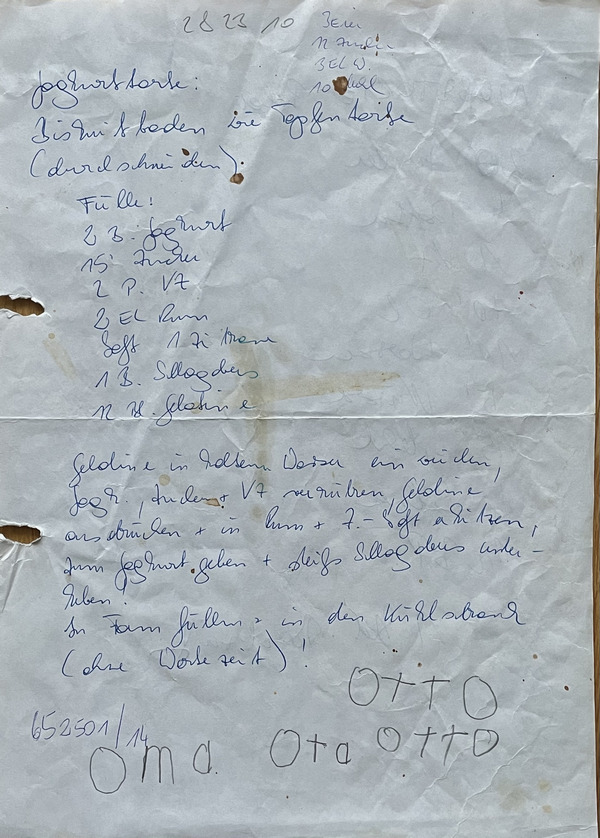 28 23 10
3 Eier
12 Zucker
3 EL W.
10 Mehl
Joghurttorte:
Biskuitboden wie Topfentorte
(durchschneiden)
Fülle:
2 B. Joghurt
15 Zucker
2 P. VZ
2 EL Rum
Saft 1 Zitrone
1 B. Schlagobers
12 Bl. Gelatine
Gelatine in kaltem Wasser einweichen,
Jogh., Zucker + VZ verrühren, Gelatine
ausdrücken + in Rum + Z.-Saft erhitzen,
zum Joghurt geben + steifes Schlagobers unter-
heben!
In Form füllen + in den Kühlschrank
(ohne Wartezeit)!
OTTO
652501/14
Oma Ota OTTO